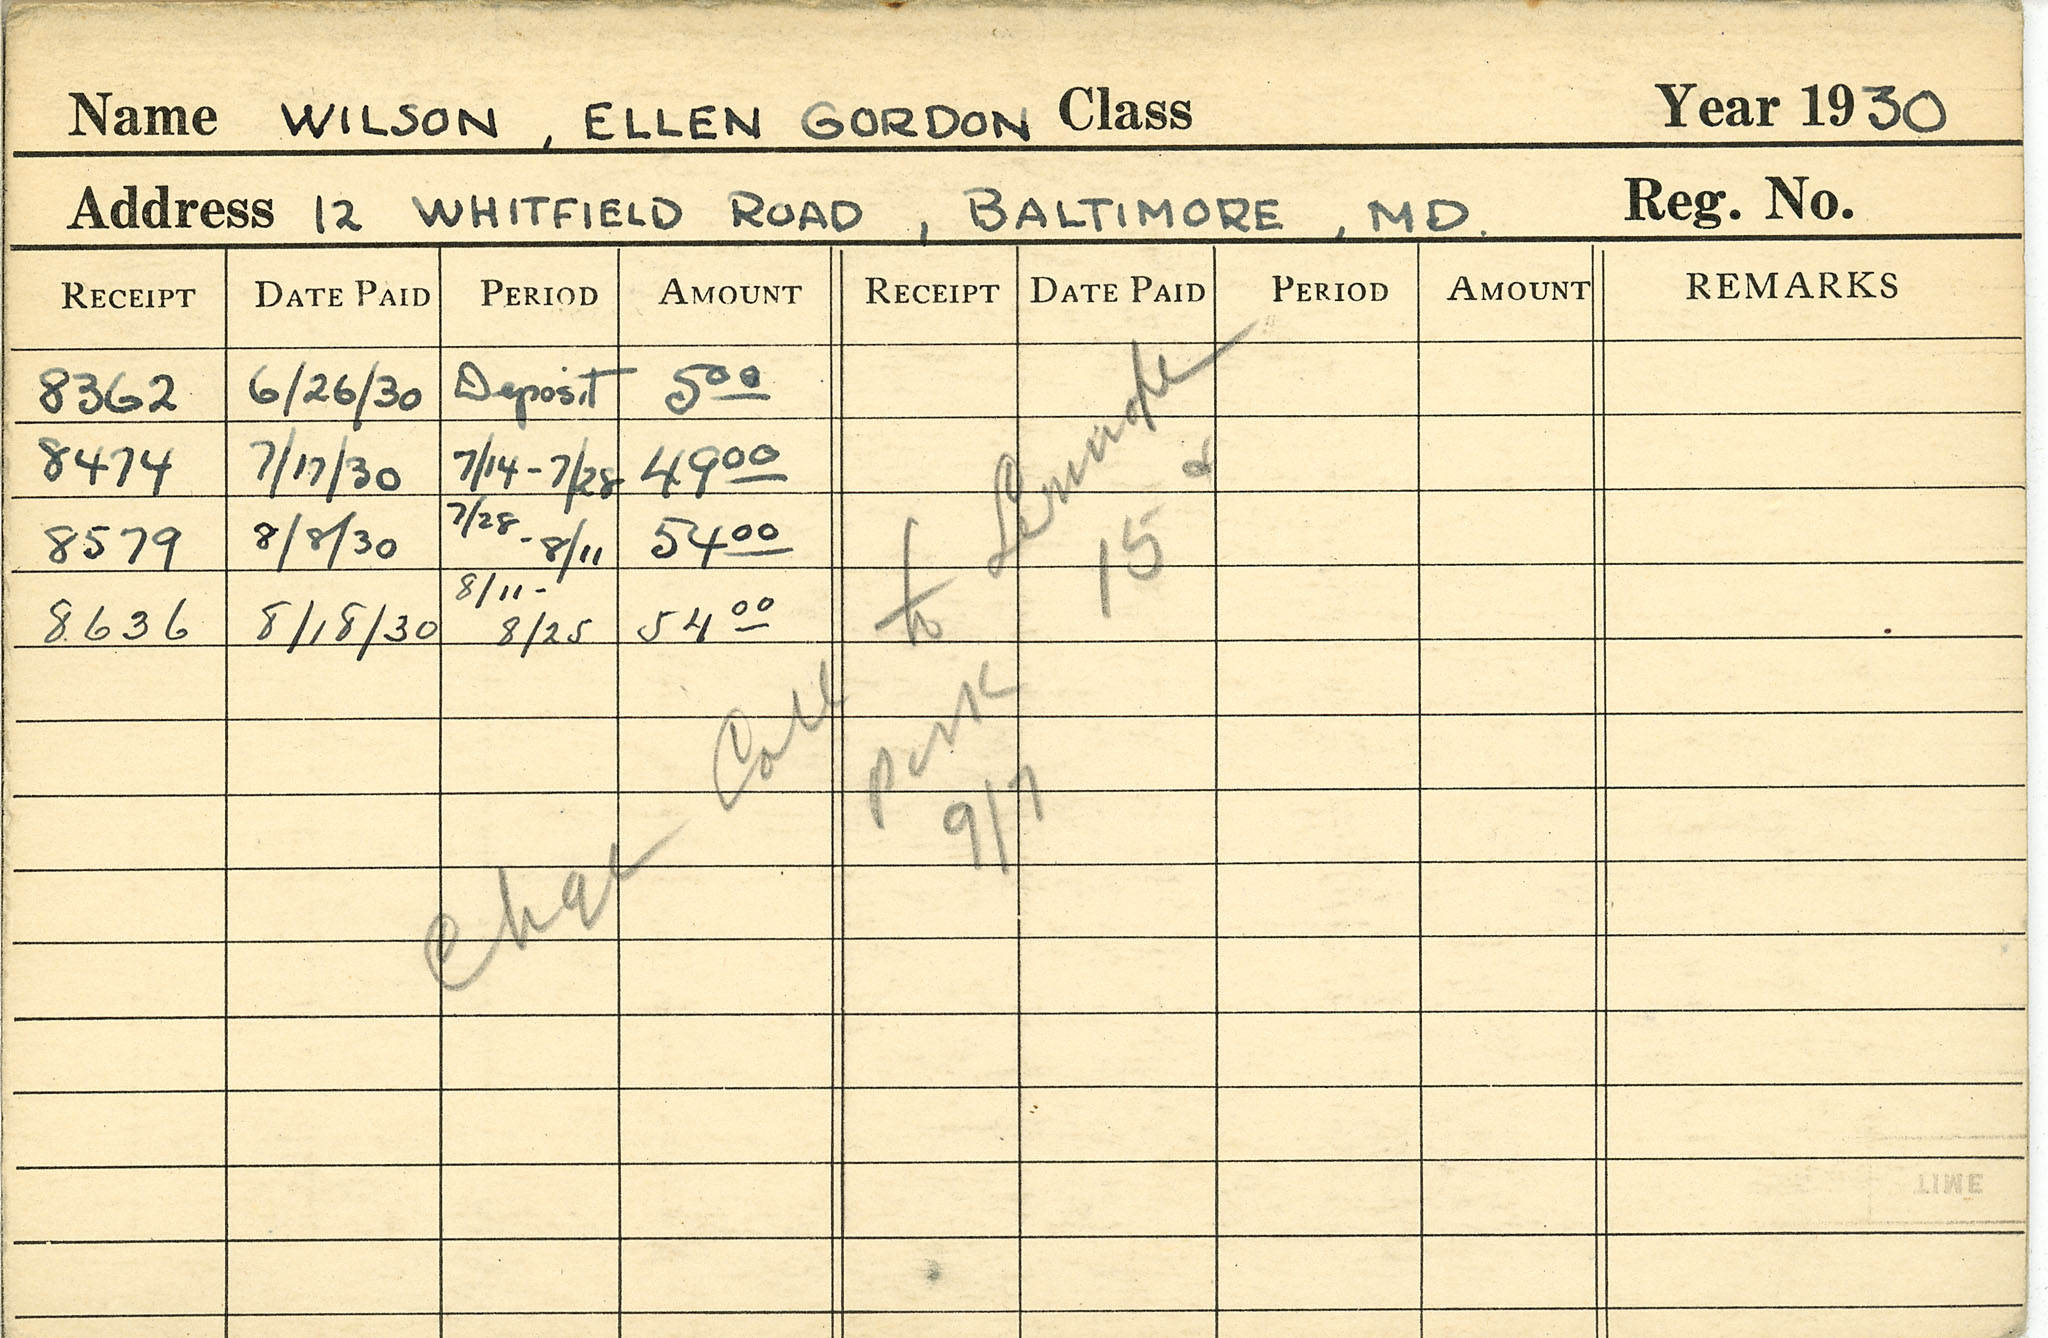 Name WILSON, ELLEN GORDON Class Year 1930
Address 12 WHITFIELD ROAD, BALTIMORE, MD. Reg. No.
RECEIPT DATE PAID PERIOD AMOUNT RECEIPT DATE PAID PERIOD AMOUNT REMARKS
8362 6/26/30 Deposit 5 00
8474 7/17/30 7/14 - 7/28 49 00
8579 8/8/30 7/28 - 8/11 54 00
8636 8/18/30 8/11 - 8/25 54 00
Call to
15
9/7
TIME